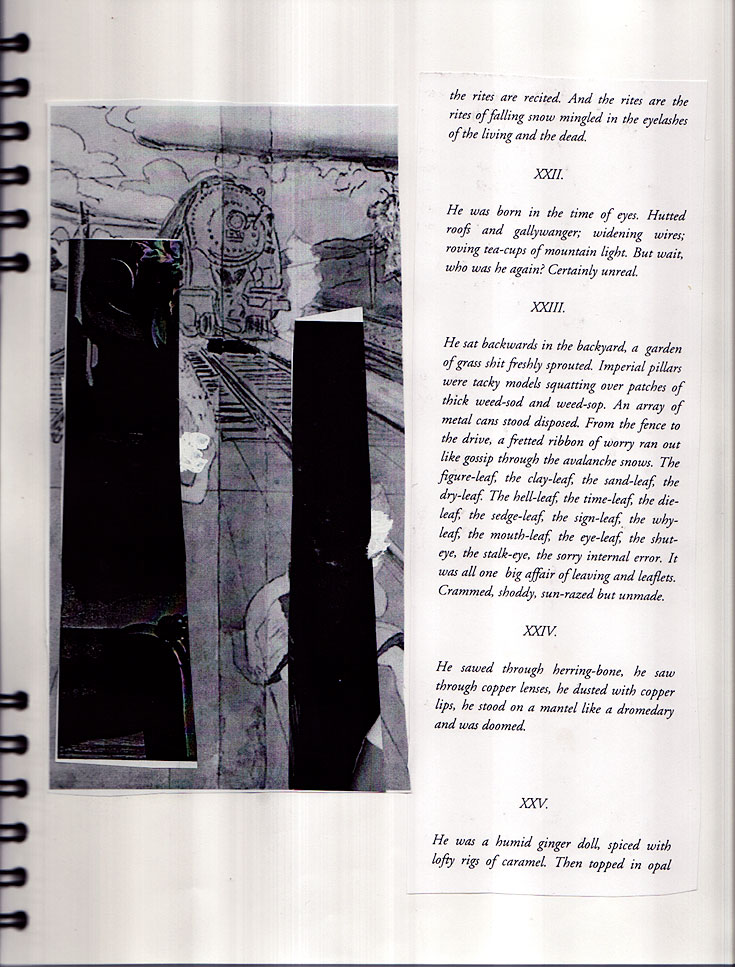 the rites are recited. And the rites are the
rites of falling snow mingled in the eyelashes
of the living and the dead.
XXII.
He was born in the time of eyes. Hutted
roofs and gallywanger; widening wires;
roving tea-cups of mountain light. But wait,
who was he again? Certainly unreal.
XXIII.
He sat backwards in the backyard, a garden
of grass shit freshly sprouted. Imperial pillars
were tacky models squatting over patches of
thick weed-sod and weed-sop. An array of
metal cans stood disposed. From the fence to
the drive, a fretted ribbon of worry ran out
like gossip through the avalanche snows. The
figure-leaf, the clay-leaf, the sand-leaf, the
dry-leaf. The hell-leaf, the time-leaf, the die-
leaf, the sedge-leaf, the sign-leaf, the why-
leaf, the mouth-leaf, the eye-leaf, the shut-
eye, the stalk-eye, the sorry internal error. It
was all one big affair of leaving and leaflets.
Crammed, shoddy, sun-razed but unmade.
XXIV.
He sawed through herring-bone, he saw
through copper lenses, he dusted with copper
lips, he stood on a mantel like a dromedary
and was doomed.
XXV.
He was a humid ginger doll, spiced with
lofty rigs of caramel. Then topped in opal